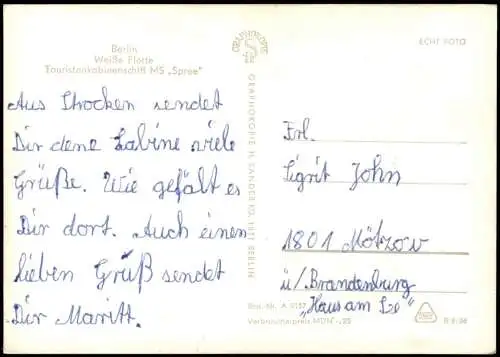 Berlin
Weiße Flotte
Touristenkabinenschiff MS „Spree"
Aus Storkow sendet
Dir deine Sabine viele
Grüße. Wie gefält es
Dir dort. Auch einen
lieben Gruß sendet
Dir Maritt.
GRAPHOKOPIE
GRAPHOKOPIE H. SANDER KG, BERLIN
ECHT FOTO
Frl.
Sigrit John
1801 Mötzow
ü/Brandenburg
„Haus am See"
Best.-Nr. A
Verbraucherpreis MDN -,20